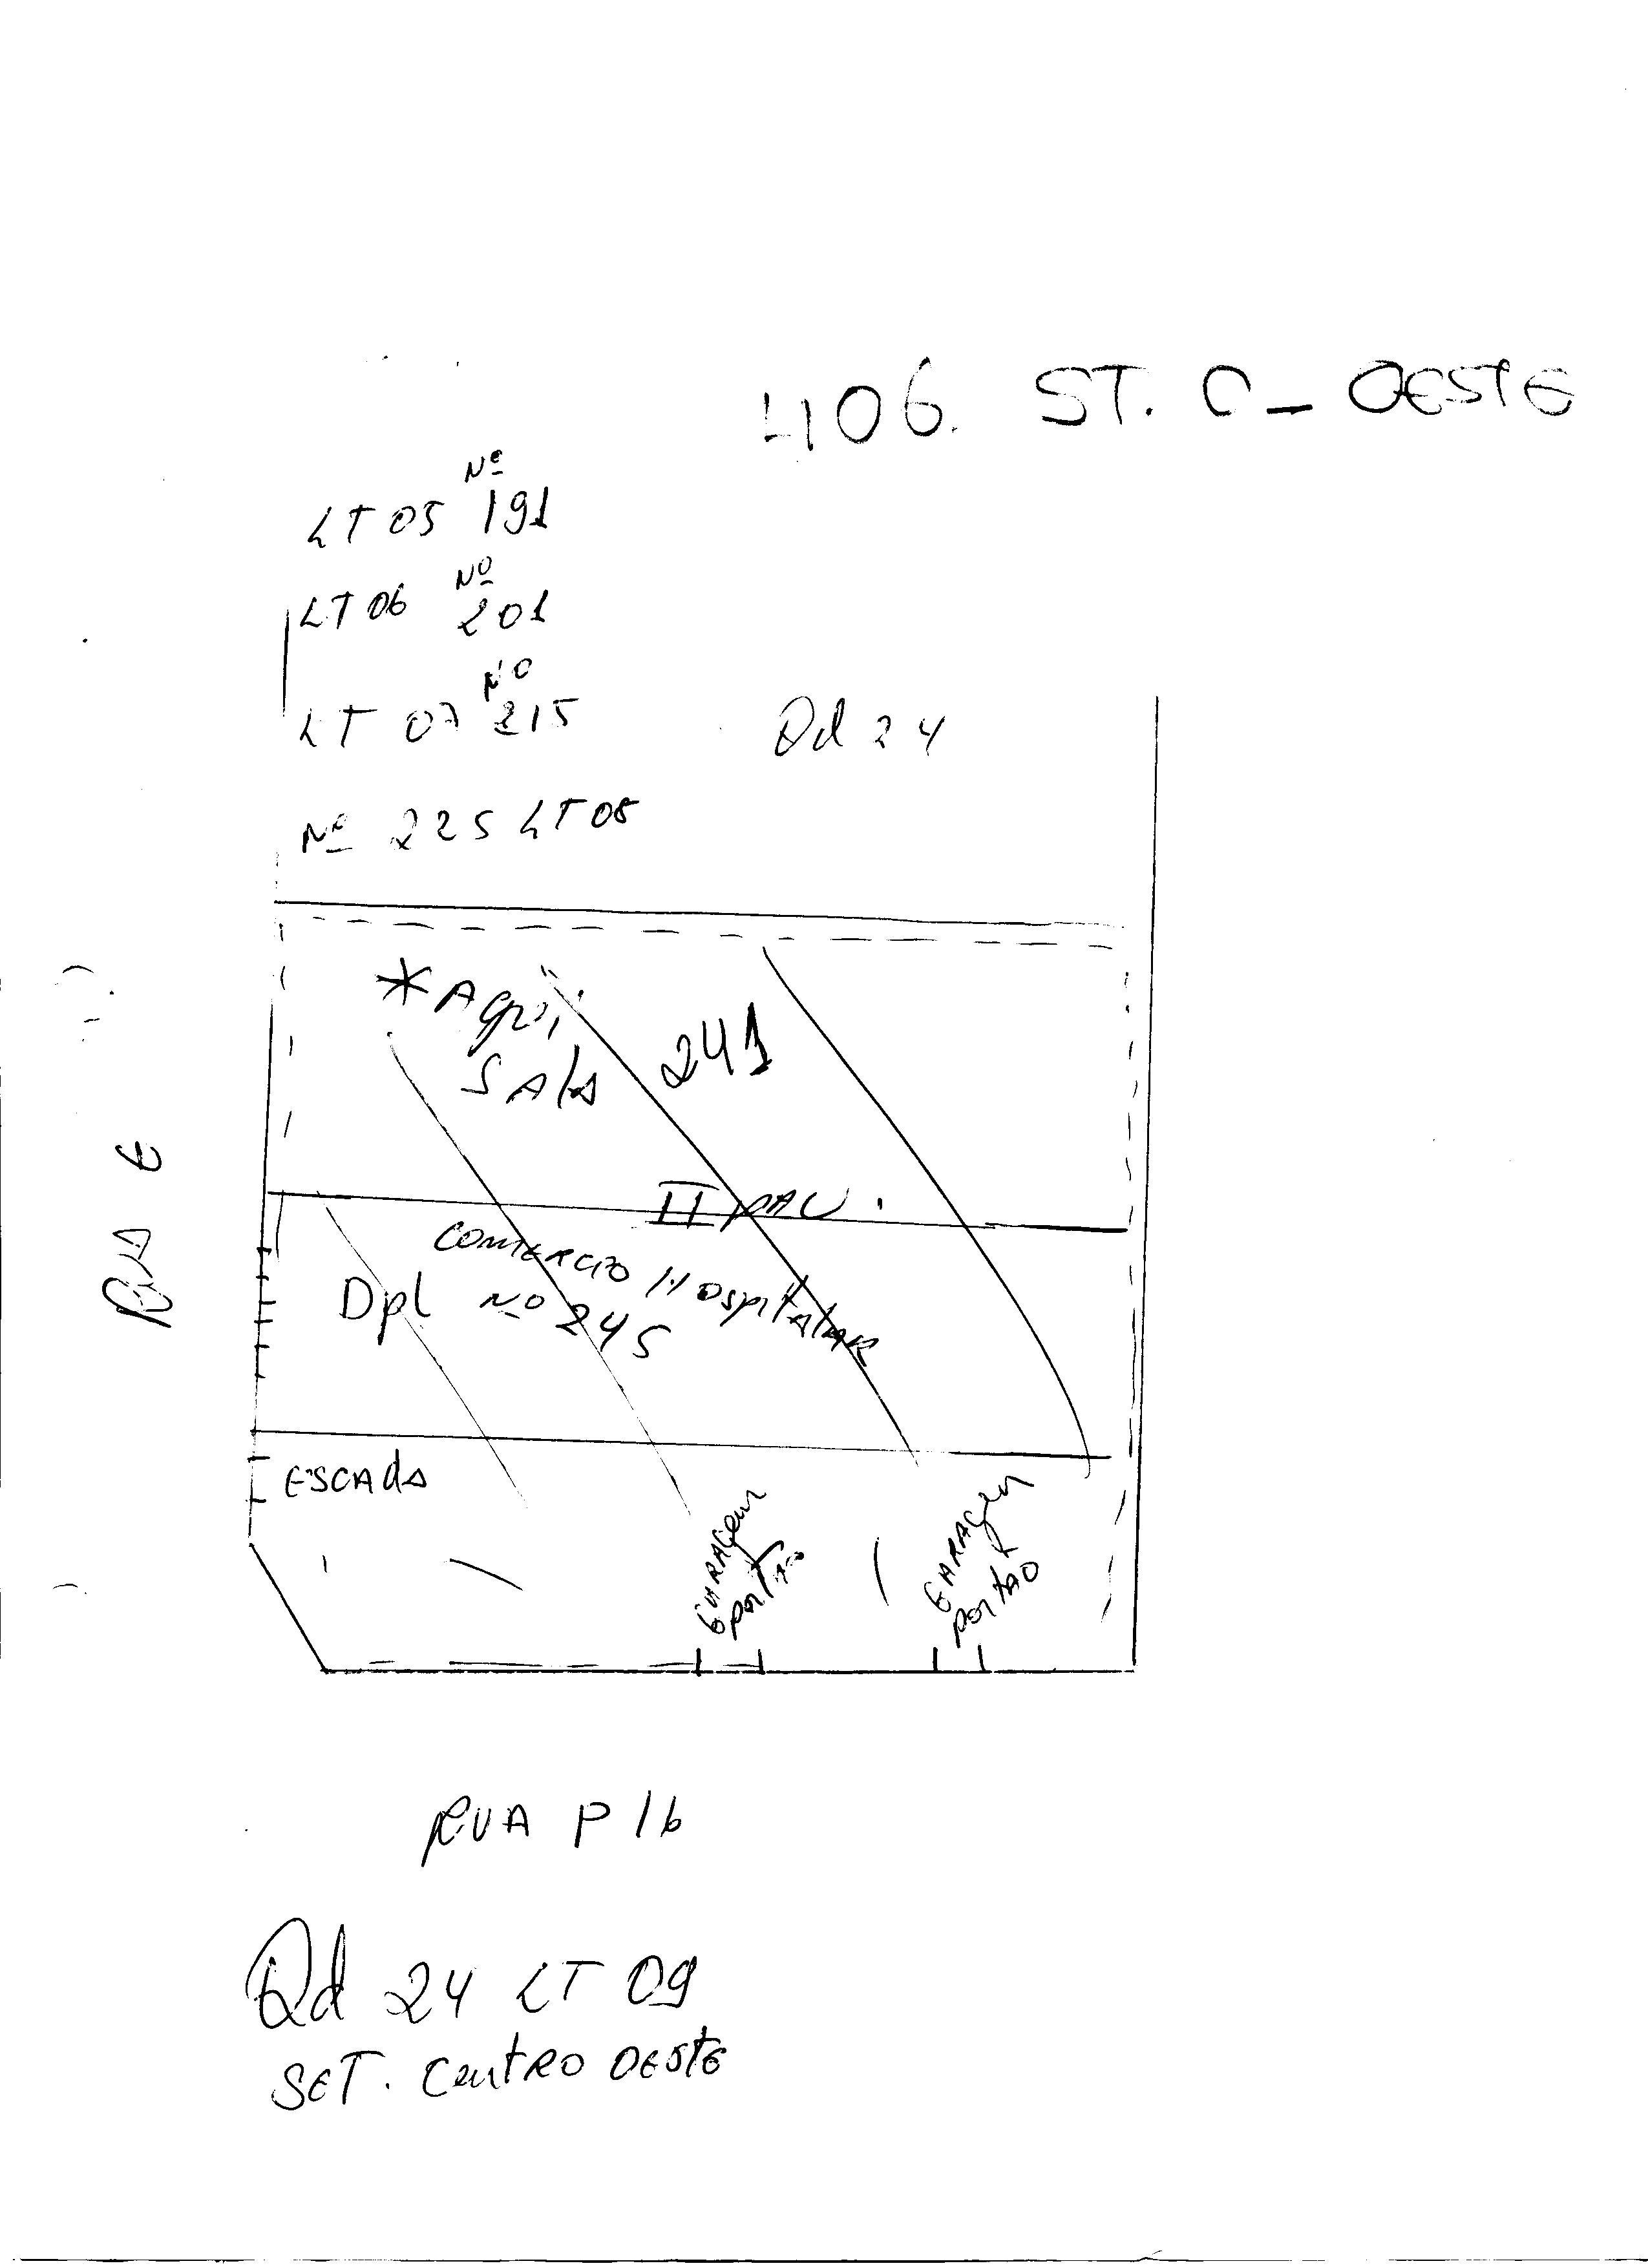 406. ST. C - OESTE
Nº
LT 05 191
Nº
LT 06 201
Nº
LT 07 215
Qd 24
Nº 225 LT 08
* Aqui
SALA
241
II PAV.
COMERCIO HOSPITALAR
Dpl Nº 245
RUA E
ESCADA
GARAGEM
PORTÃO
GARAGEM
PORTÃO
RUA P 16
Qd 24 LT 09
SET. CENTRO OESTE